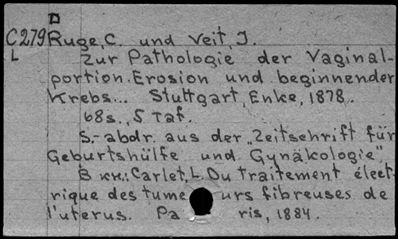 C279 Ruge, C. und Veit, J.
L Zur Pathologie der Vaginal-
portion. Erosion und beginnender
Krebs... Stuttgart, Enke, 1878.
68s., 5 Taf.
S.-abdr. aus der „Zeitschrift für
Geburtshülfe und Gynäkologie"
В кн.: Carlet, L. Du traitement élect-
rique des tume urs fibreuses de
l'uterus. Pa ris, 1884.